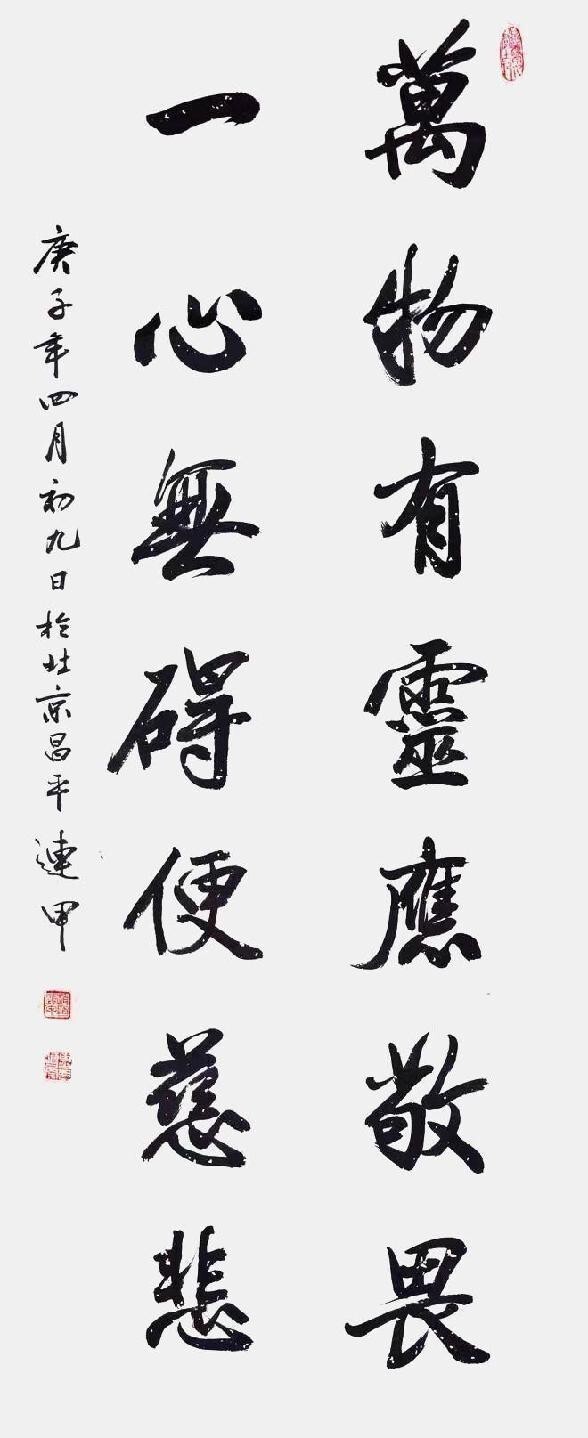 萬物有靈應敬畏
一心無碍便慈悲
庚子年四月初九日於北京昌平連甲